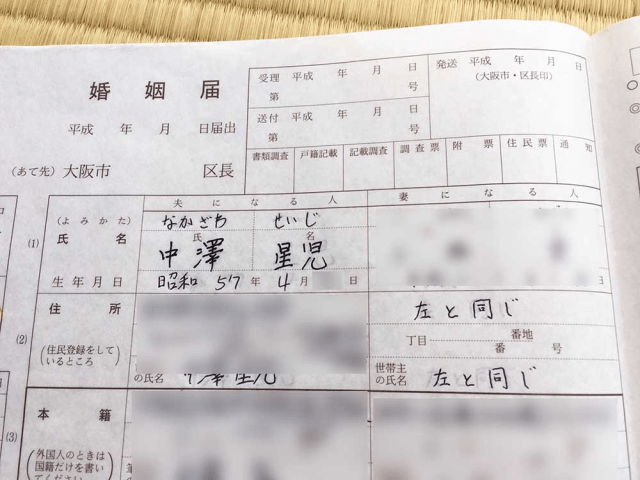 婚姻届
平成 年 月 日届出
(あて先)大阪市 区長
受理 平成 年 月 日
第 号
送付 平成 年 月 日
第 号
発送 平成 年 月 日
(大阪市・区長印)
書類調査 戸籍記載 記載調査 調査票 附票 住民票 通知
夫になる人 妻になる人
(1)
(よみかた) なかざわ せいじ
氏名 氏 名
中澤 星児
生年月日 昭和 57年 4月 日
(2)
住所 左と同じ
(住民登録をしているところ)
丁目 番地
番 号
の氏名 中澤星児
世帯主の氏名 左と同じ
(3)
本籍
(外国人のときは
国籍だけを書い
てください)